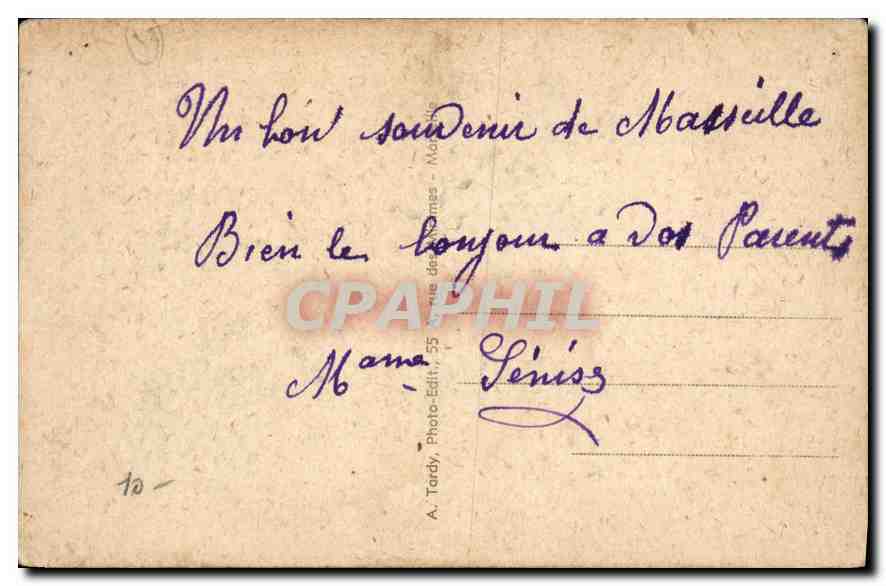 Un bon souvenir de Marseille
Bien le bonjour a vos Parents
Mame
10-
A. Tardy, Photo-Edit., 55 rue des - Marseille
CPAPHIL